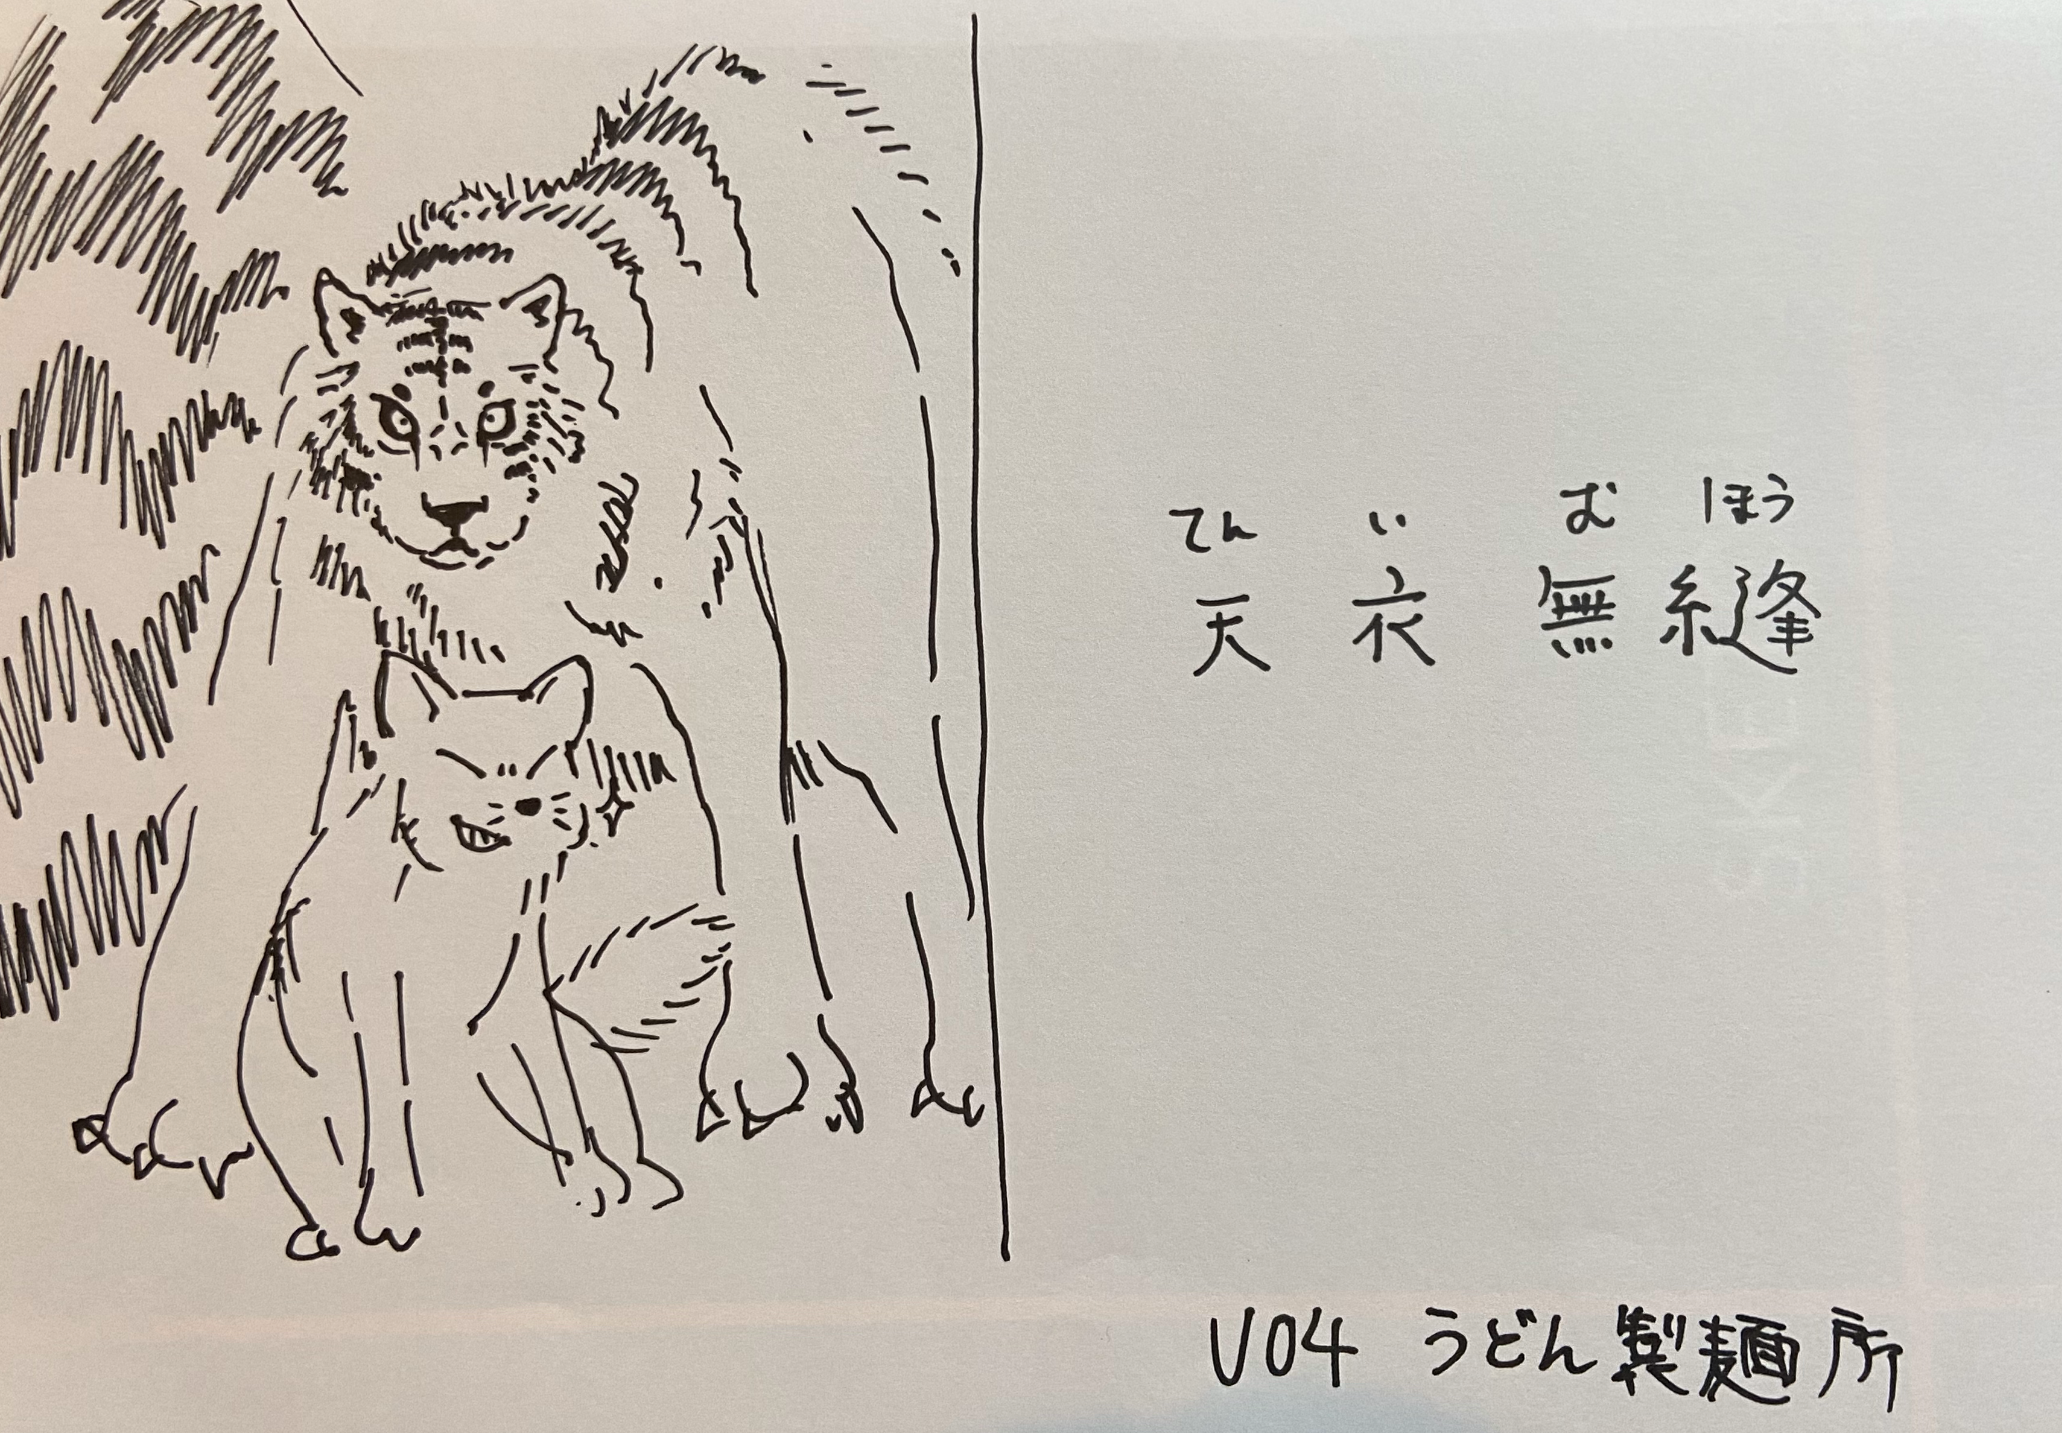 てん い む ほう
天衣無縫
U04 うどん製麺所